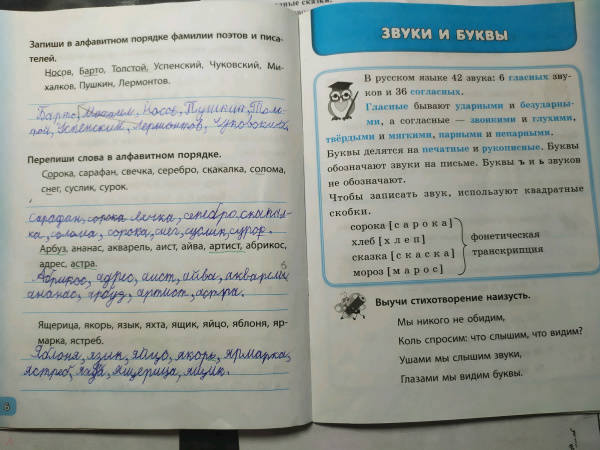 Запиши в алфавитном порядке фамилии поэтов и писа-
телей.
Носов, Барто, Толстой, Успенский, Чуковский, Ми-
халков, Пушкин, Лермонтов.
Барто, Носов, Пушкин, Тол-
той, Успенский, Лермонтов, Чуковский
Перепиши слова в алфавитном порядке.
Сорока, сарафан, свечка, серебро, скакалка, солома,
снег, суслик, сурок.
Сарафан, сорока свечка, серебро, скакал-
ка, солома, сорока, снег, суслик, сурок.
Арбуз, ананас, акварель, аист, айва, артист, абрикос,
адрес, астра.
Абрикос, адрес, аист, айва, акварель,
ананас, арбуз, артист, астра.
Ящерица, якорь, язык, яхта, ящик, яйцо, яблоня, яр-
марка, ястреб.
Яблоня, язык, яйцо, якорь, ярмарка,
ястреб, яхта, ящерица, ящик.
6
ные сказки.
ЗВУКИ И БУКВЫ
В русском языке 42 звука: 6 гласных зву-
ков и 36 согласных.
Гласные бывают ударными и безударны-
ми, а согласные — звонкими и глухими,
твёрдыми и мягкими, парными и непарными.
Буквы делятся на печатные и рукописные. Буквы
обозначают звуки на письме. Буквы ъ и ь звуков
не обозначают.
Чтобы записать звук, используют квадратные
скобки.
сорока [с а р о к а]
хлеб [х л е п]
сказка [с к а с к а]
мороз [м а р о с]
фонетическая
транскрипция
Выучи стихотворение наизусть.
Мы никого не обидим,
Коль спросим: что слышим, что видим?
Ушами мы слышим звуки,
Глазами мы видим буквы.